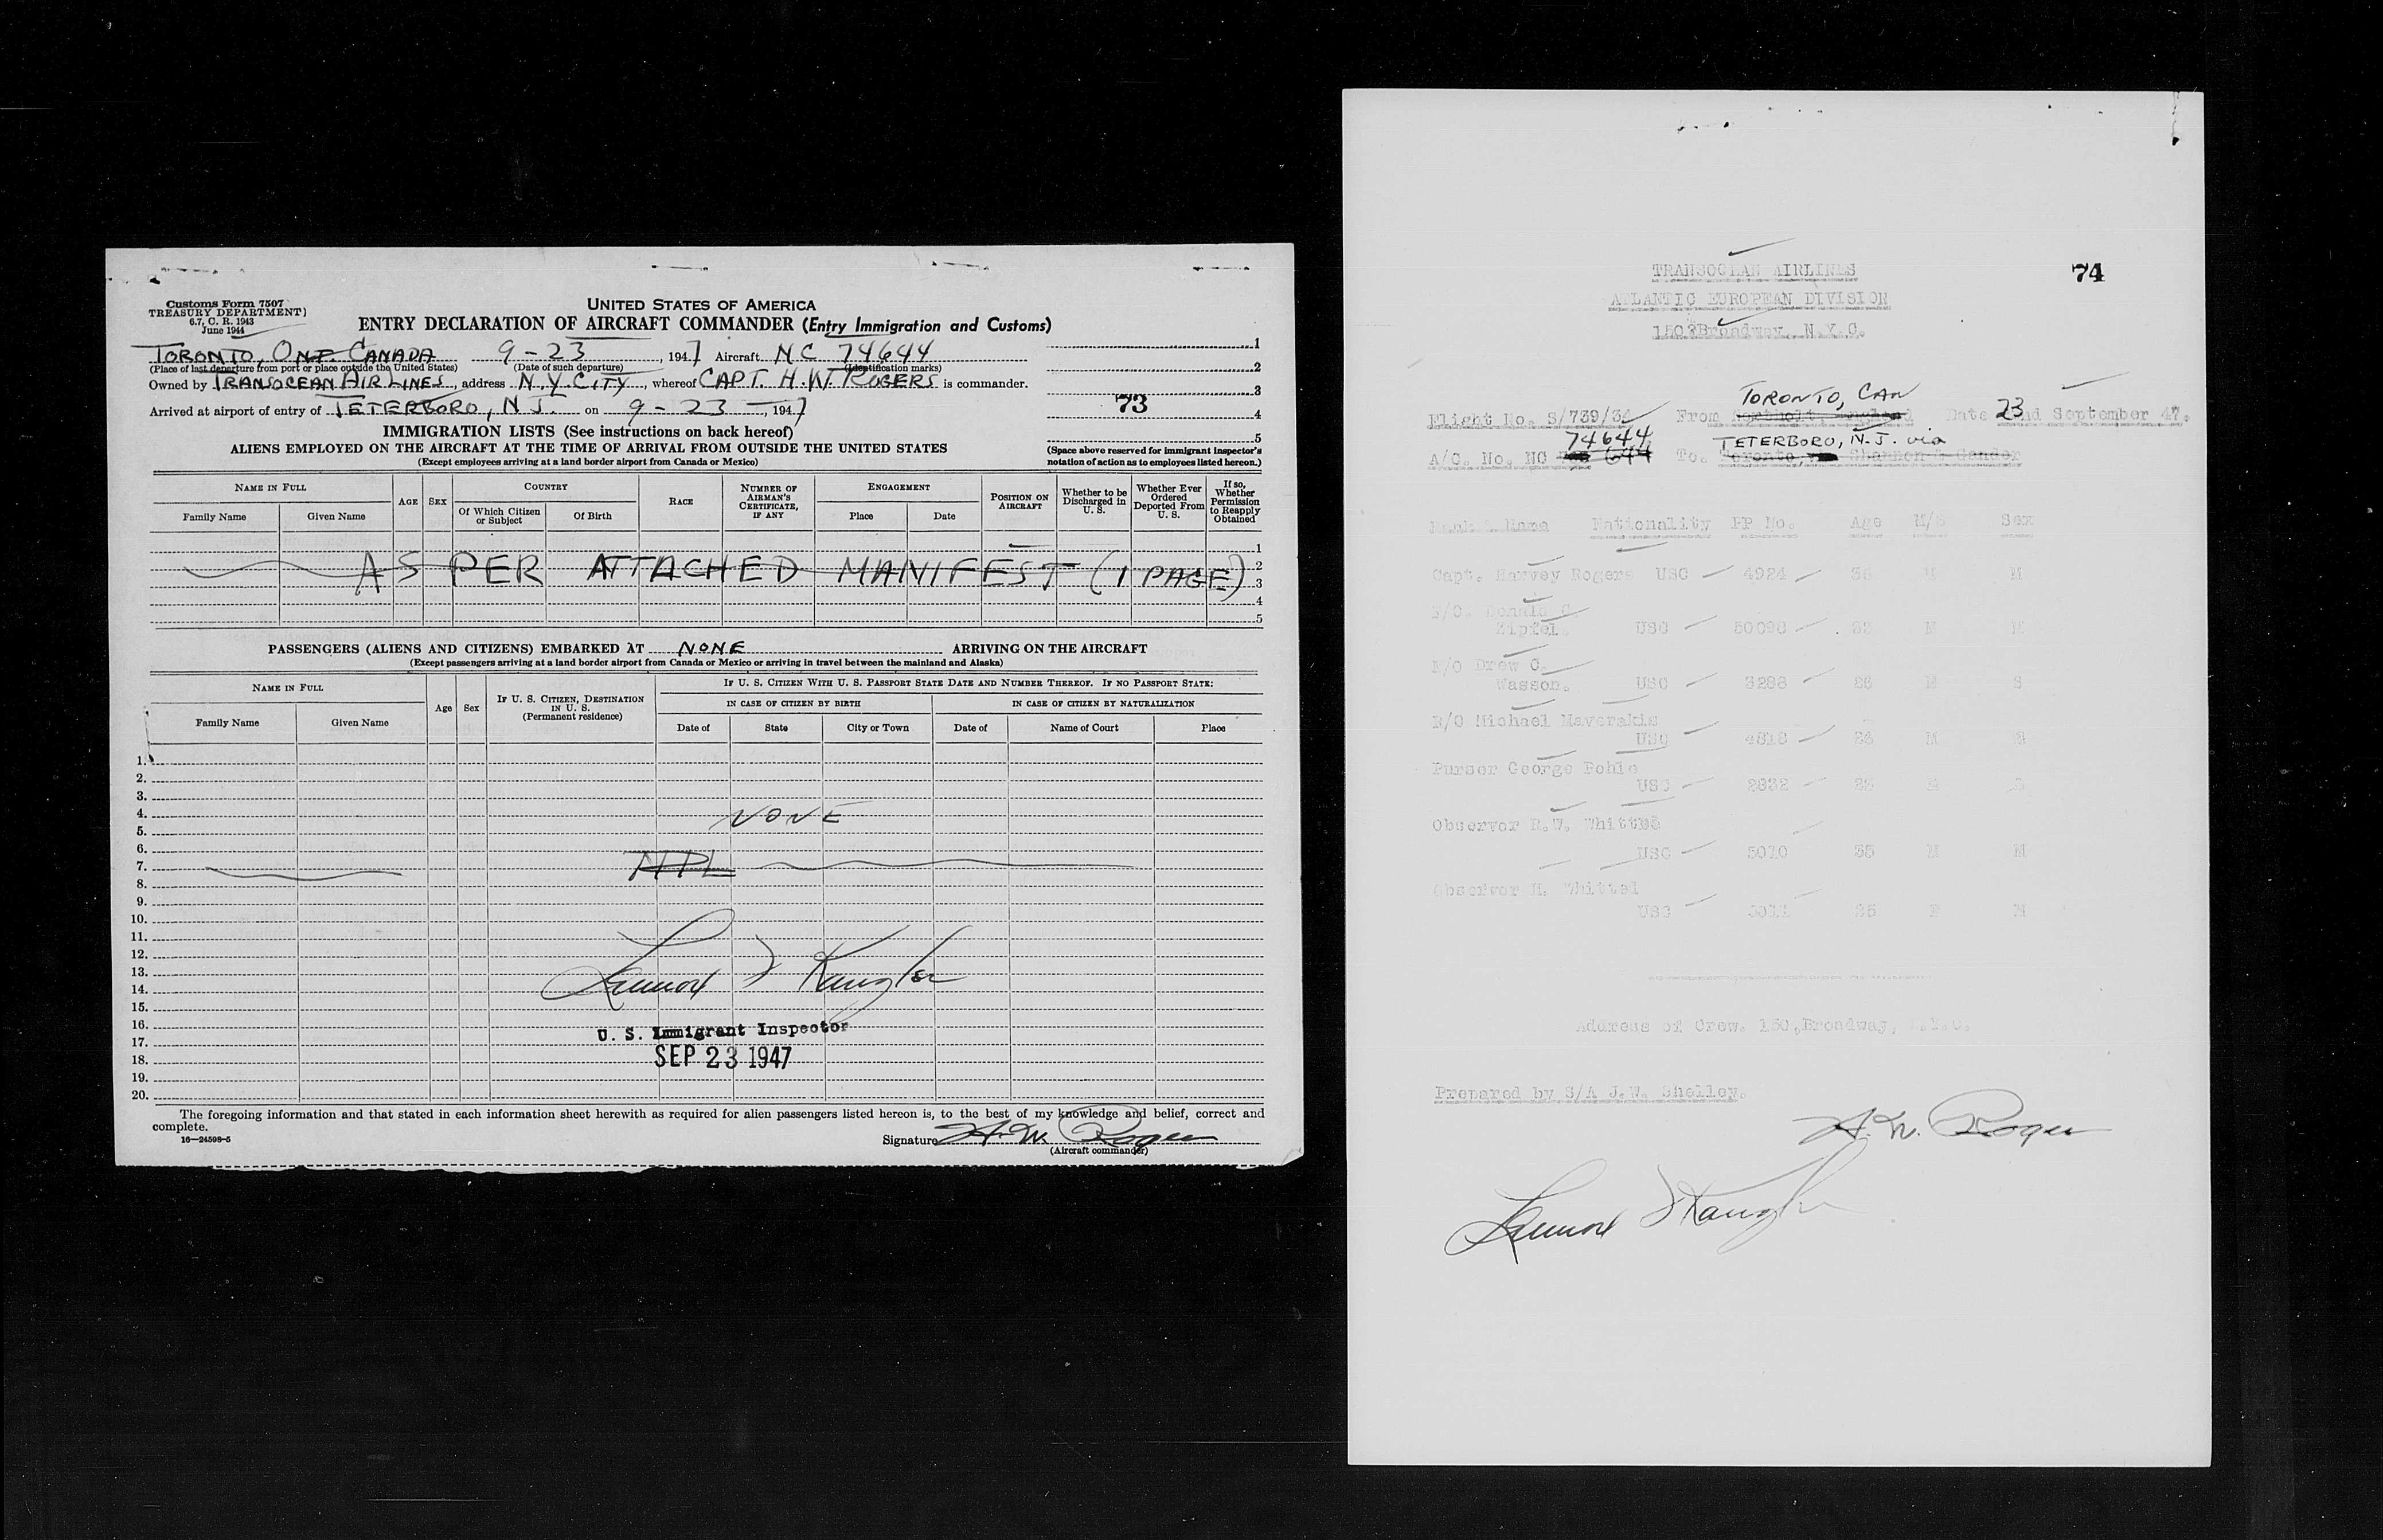 Customs Form 7507
TREASURY DEPARTMENT
6.7, C. R. 1943
June 1944
UNITED STATES OF AMERICA
ENTRY DECLARATION OF AIRCRAFT COMMANDER (Entry Immigration and Customs)
TORONTO, ONT. CANADA 9-23, 1947 Aircraft NC 74644
(Place of last departure from port or place outside the United States) (Date of such departure) (Identification marks)
Owned by TRANSOCEAN AIR LINES, address N.Y. CITY, whereof CAPT. H.W. ROGERS is commander.
Arrived at airport of entry of TETERBORO, N.J. on 9-23, 1947
1
2
3
73
4
5
IMMIGRATION LISTS (See instructions on back hereof)
ALIENS EMPLOYED ON THE AIRCRAFT AT THE TIME OF ARRIVAL FROM OUTSIDE THE UNITED STATES
(Except employees arriving at a land border airport from Canada or Mexico)
(Space above reserved for immigrant inspector's
notation of action as to employees listed hereon.)
NAME IN FULL
Family Name Given Name
AGE SEX
COUNTRY
Of Which Citizen or Subject Of Birth
RACE
NUMBER OF AIRMAN'S CERTIFICATE, IF ANY
ENGAGEMENT
Place Date
POSITION ON AIRCRAFT
Whether to be Discharged in U. S.
Whether Ever Ordered Deported From U. S.
If so, Whether Permission to Reapply Obtained
1
2
AS PER ATTACHED MANIFEST (1 PAGE)
3
4
5
PASSENGERS (ALIENS AND CITIZENS) EMBARKED AT NONE ARRIVING ON THE AIRCRAFT
(Except passengers arriving at a land border airport from Canada or Mexico or arriving in travel between the mainland and Alaska)
NAME IN FULL
Family Name Given Name
Age Sex
IF U. S. CITIZEN, DESTINATION IN U. S.
(Permanent residence)
IF U. S. CITIZEN WITH U. S. PASSPORT STATE DATE AND NUMBER THEREOF. IF NO PASSPORT STATE:
IN CASE OF CITIZEN BY BIRTH IN CASE OF CITIZEN BY NATURALIZATION
Date of State City or Town Date of Name of Court Place
1.
2.
3.
4. NONE
5.
6.
7.
8.
9.
10.
11.
12.
13.
14.
15.
16. U. S. Immigrant Inspector
17.
18. SEP 23 1947
19.
20.
The foregoing information and that stated in each information sheet herewith as required for alien passengers listed hereon is, to the best of my knowledge and belief, correct and
complete.
16—24598-5
Signature H. W. Rogers
(Aircraft commander)
74
TRANSOCEAN AIRLINES
ATLANTIC EUROPEAN DIVISION
Broadway, N.Y.C.
TORONTO, CAN
Flight No. S/739/34 From Northolt, England Date 23nd September 47.
74644 TETERBORO, N.J. via
A/C. No. NC 644 To. Toronto, via Shannon & Gander
Rank & Name Nationality PP No. Age M/S Sex
Capt. Harvey Rogers USC 4924 36 M M
F/O. Donald C.
Zipfel. USC 50098 32 M M
N/O Drew C.
Wasson. USC 3288 26 M S
R/O Michael Maverakis
USC 4818 26 M S
Purser George Pohle
USC 2832 22 M S
Observor R.W. Whittel
USC 5010 35 M M
Observor H. Whittel
USC 5011 26 F M
Address of Crew. Broadway, N.Y.C.
Prepared by S/A J.W. Shelley.
H. W. Rogers